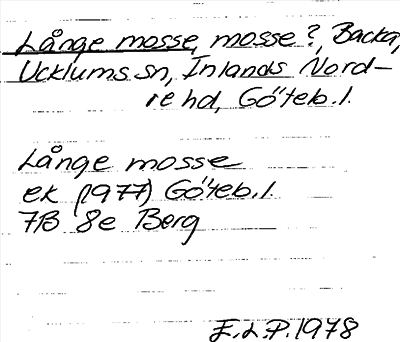 Långe mosse, mosse?, Backa,
Ucklums sn, Inlands Nord-
re hd, Göteb. l.
Långe mosse
ek (1977) Göteb. l.
7B 8e Berg
E.L.P. 1978